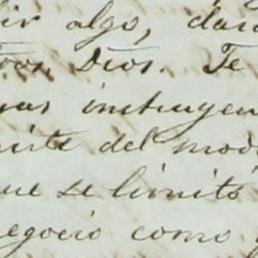 ir algo,
Dios. Te
instruyen
del mod
que se limitó
negocio como